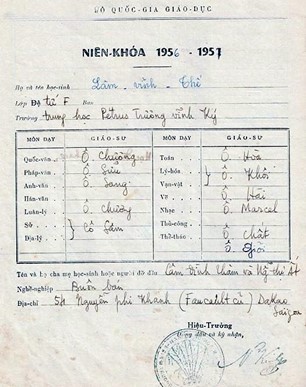 BỘ QUỐC-GIA GIÁO-DỤC
NIÊN-KHÓA 1956 - 1957
Họ và tên học-sinh Lâm vĩnh Thế
Lớp Đệ tứ F Ban
Trường trung học Pétrus Trương vĩnh Ký
MÔN DẠY GIÁO-SƯ MÔN DẠY GIÁO-SƯ
Quốc-văn Ô. Chương Toán Ô. Hòa
Pháp-văn Ô. Sửu Lý-hóa Ô. Khôi
Anh-văn Ô. Sang Vạn-vật
Hán-văn Vẽ Ô. Hải
Luân-lý Ô. Chương Nhạc Ô. Marcel
Sử Cô Sâm Thủ-công
Địa-lý Thể-thao Ô. Chất
Ô. Giỏi
Tên và họ cha mẹ học-sinh hoặc người đỡ đầu Lâm Đình Thâm và Ng thị Ất
Nghề-nghiệp Buôn bán
Địa-chỉ 5A Nguyễn phi Khanh (Faucault cũ) Dakao Saigon
Hiệu-Trưởng
đóng dấu và ký nhận,